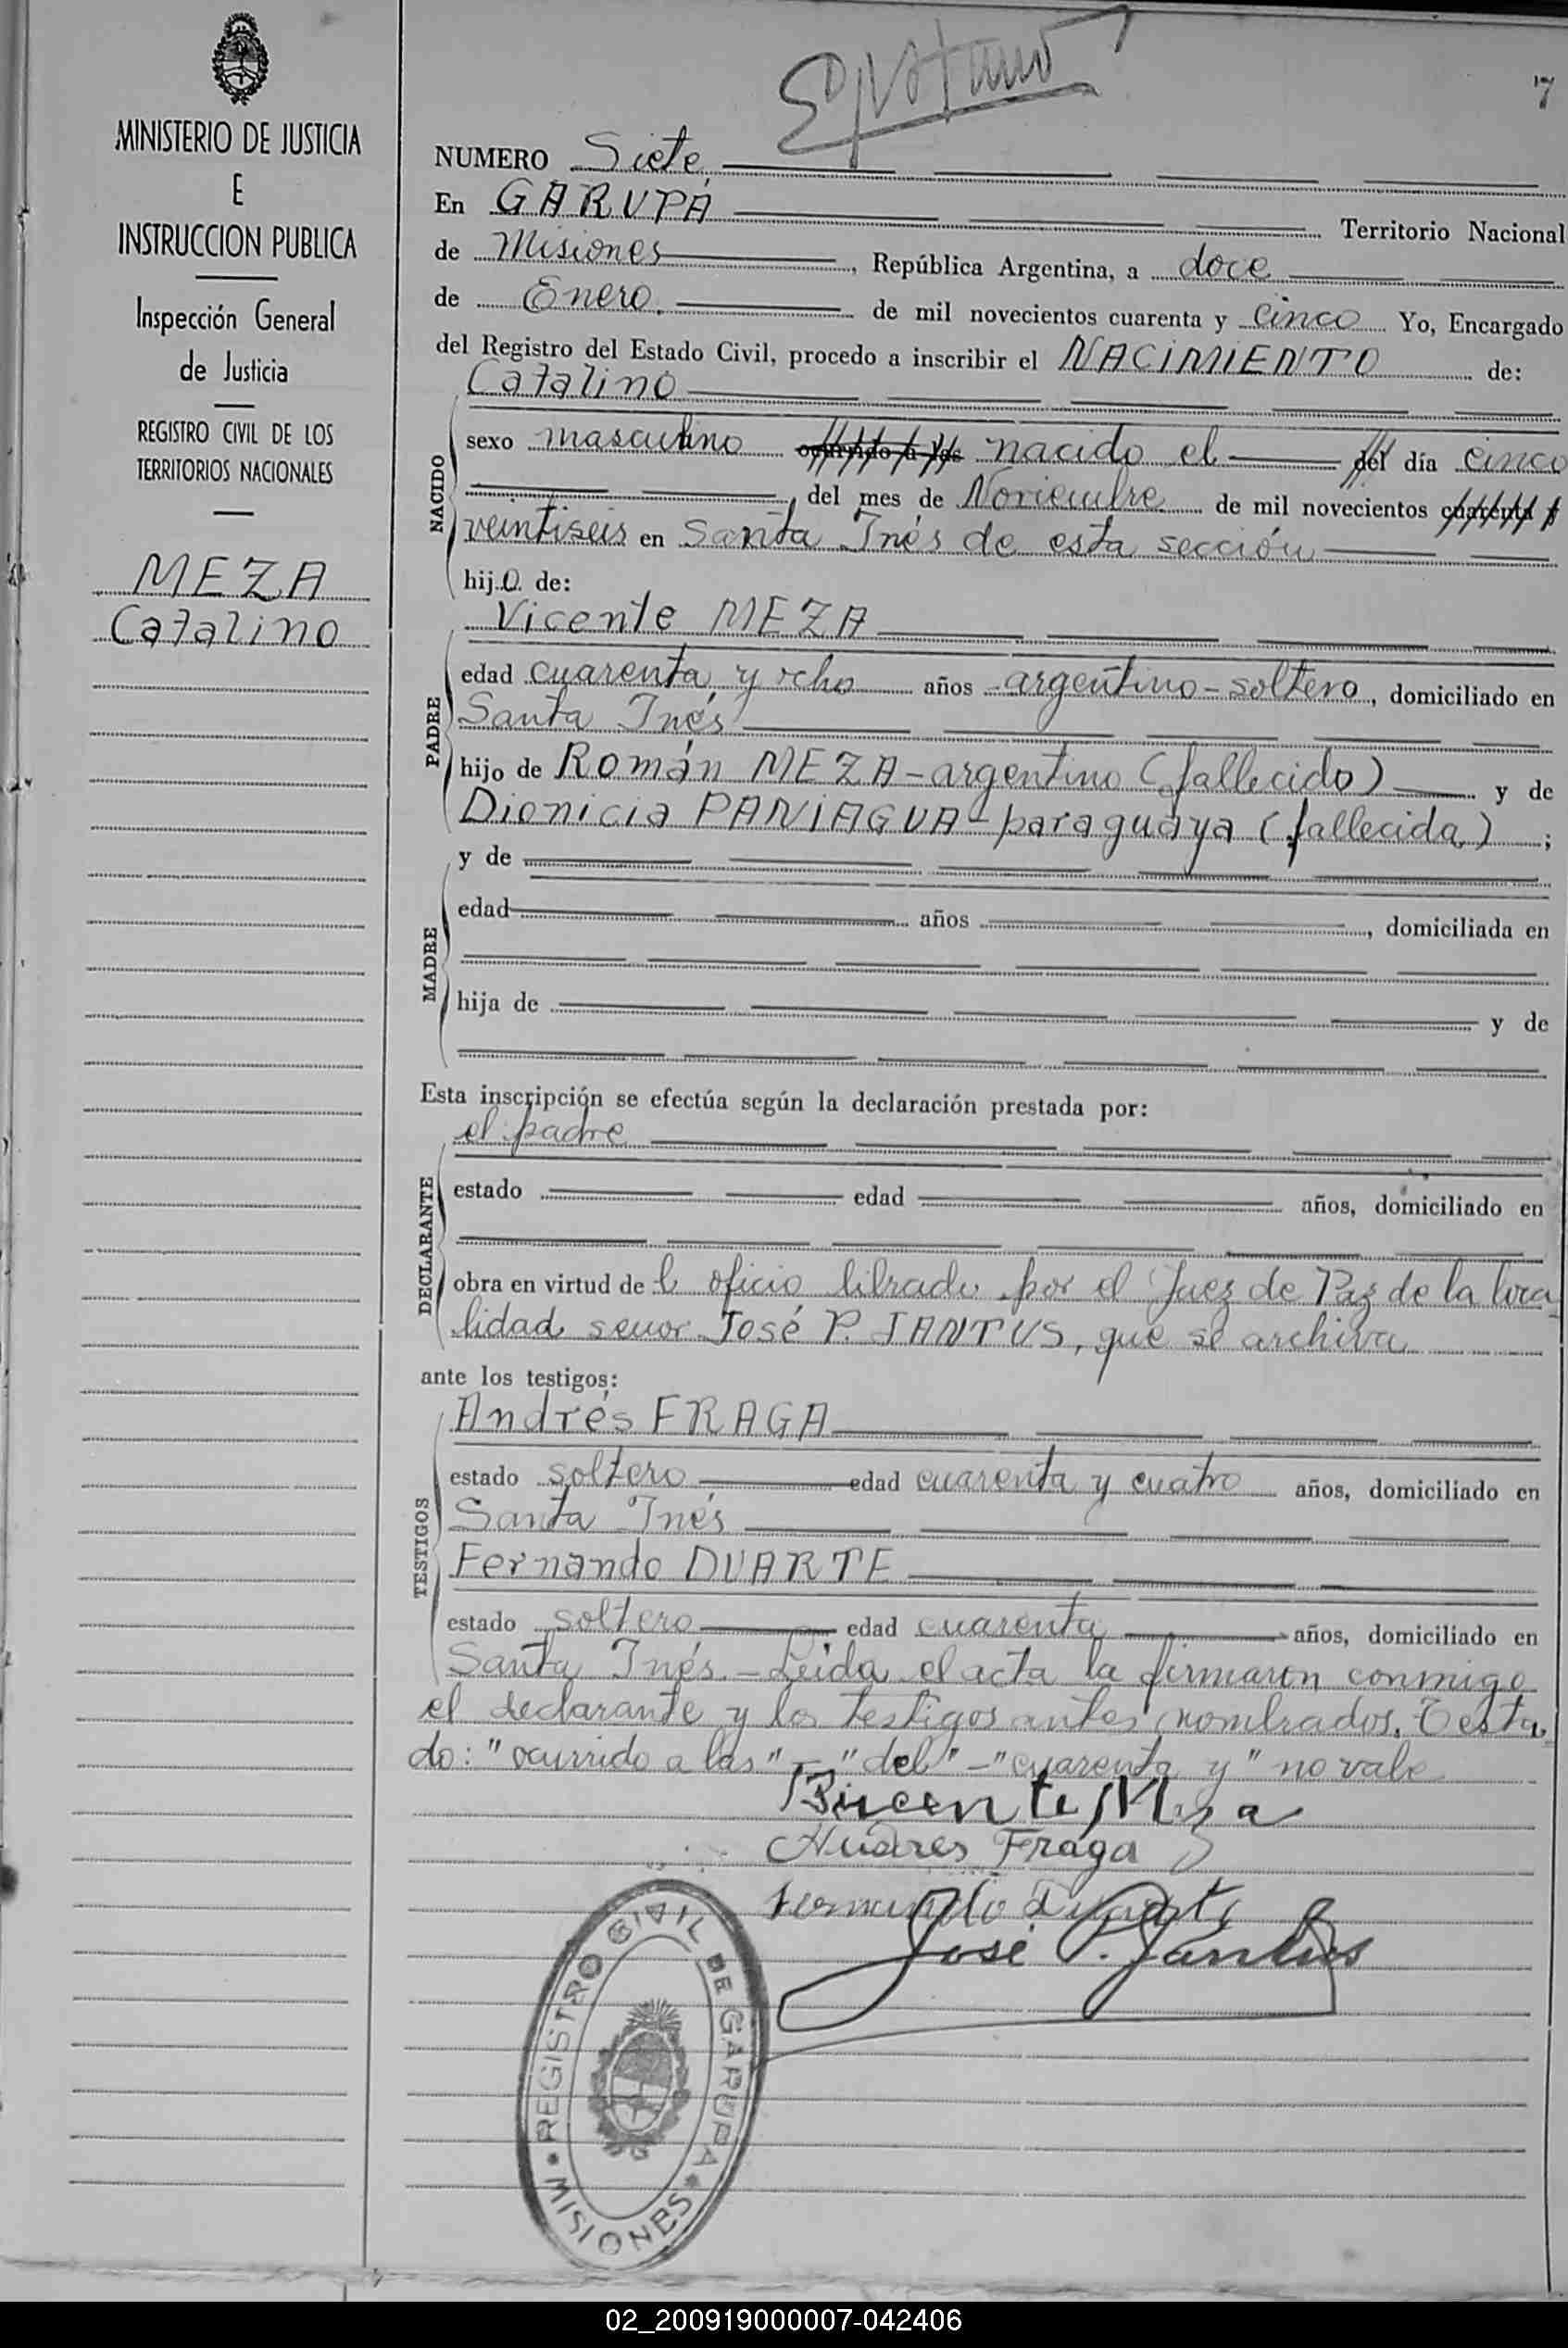 7
MINISTERIO DE JUSTICIA
E
INSTRUCCION PUBLICA
Inspección General
de Justicia
REGISTRO CIVIL DE LOS
TERRITORIOS NACIONALES
MEZA
Catalino
NUMERO Siete
En GARUPÁ Territorio Nacional
de Misiones, República Argentina, a doce
de Enero. de mil novecientos cuarenta y cinco Yo, Encargado
del Registro del Estado Civil, procedo a inscribir el NACIMIENTO de:
Catalino
NACIDO
sexo masculino ocurrido a las nacido el del día cinco
del mes de Noviembre de mil novecientos cuarenta y
veintiseis en Santa Inés de esta sección
hijo de:
Vicente MEZA
PADRE
edad cuarenta y ocho años argentino - soltero, domiciliado en
Santa Inés
hijo de Román MEZA - argentino (fallecido) y de
Dionicia PANIAGUA - paraguaya (fallecida);
y de
MADRE
edad años, domiciliada en
hija de y de
Esta inscripción se efectúa según la declaración prestada por:
el padre
DECLARANTE
estado edad años, domiciliado en
obra en virtud de l oficio librado por el Juez de Paz de la loca
lidad senor José P. JANTUS, que se archiva
ante los testigos:
Andrés FRAGA
TESTIGOS
estado soltero edad cuarenta y cuatro años, domiciliado en
Santa Inés
Fernando DUARTE
estado soltero edad cuarenta años, domiciliado en
Santa Inés. - Leida el acta la firmaron conmigo
el declarante y los testigos antes nombrados. Testa
do: "ocurrido a las" - "del" - "cuarenta y" no vale
Bicente Meza
Andres Fraga
Fernando Duarte
José P. Jantus
REGISTRO CIVIL DE GARUPA
MISIONES
02_200919000007-042406